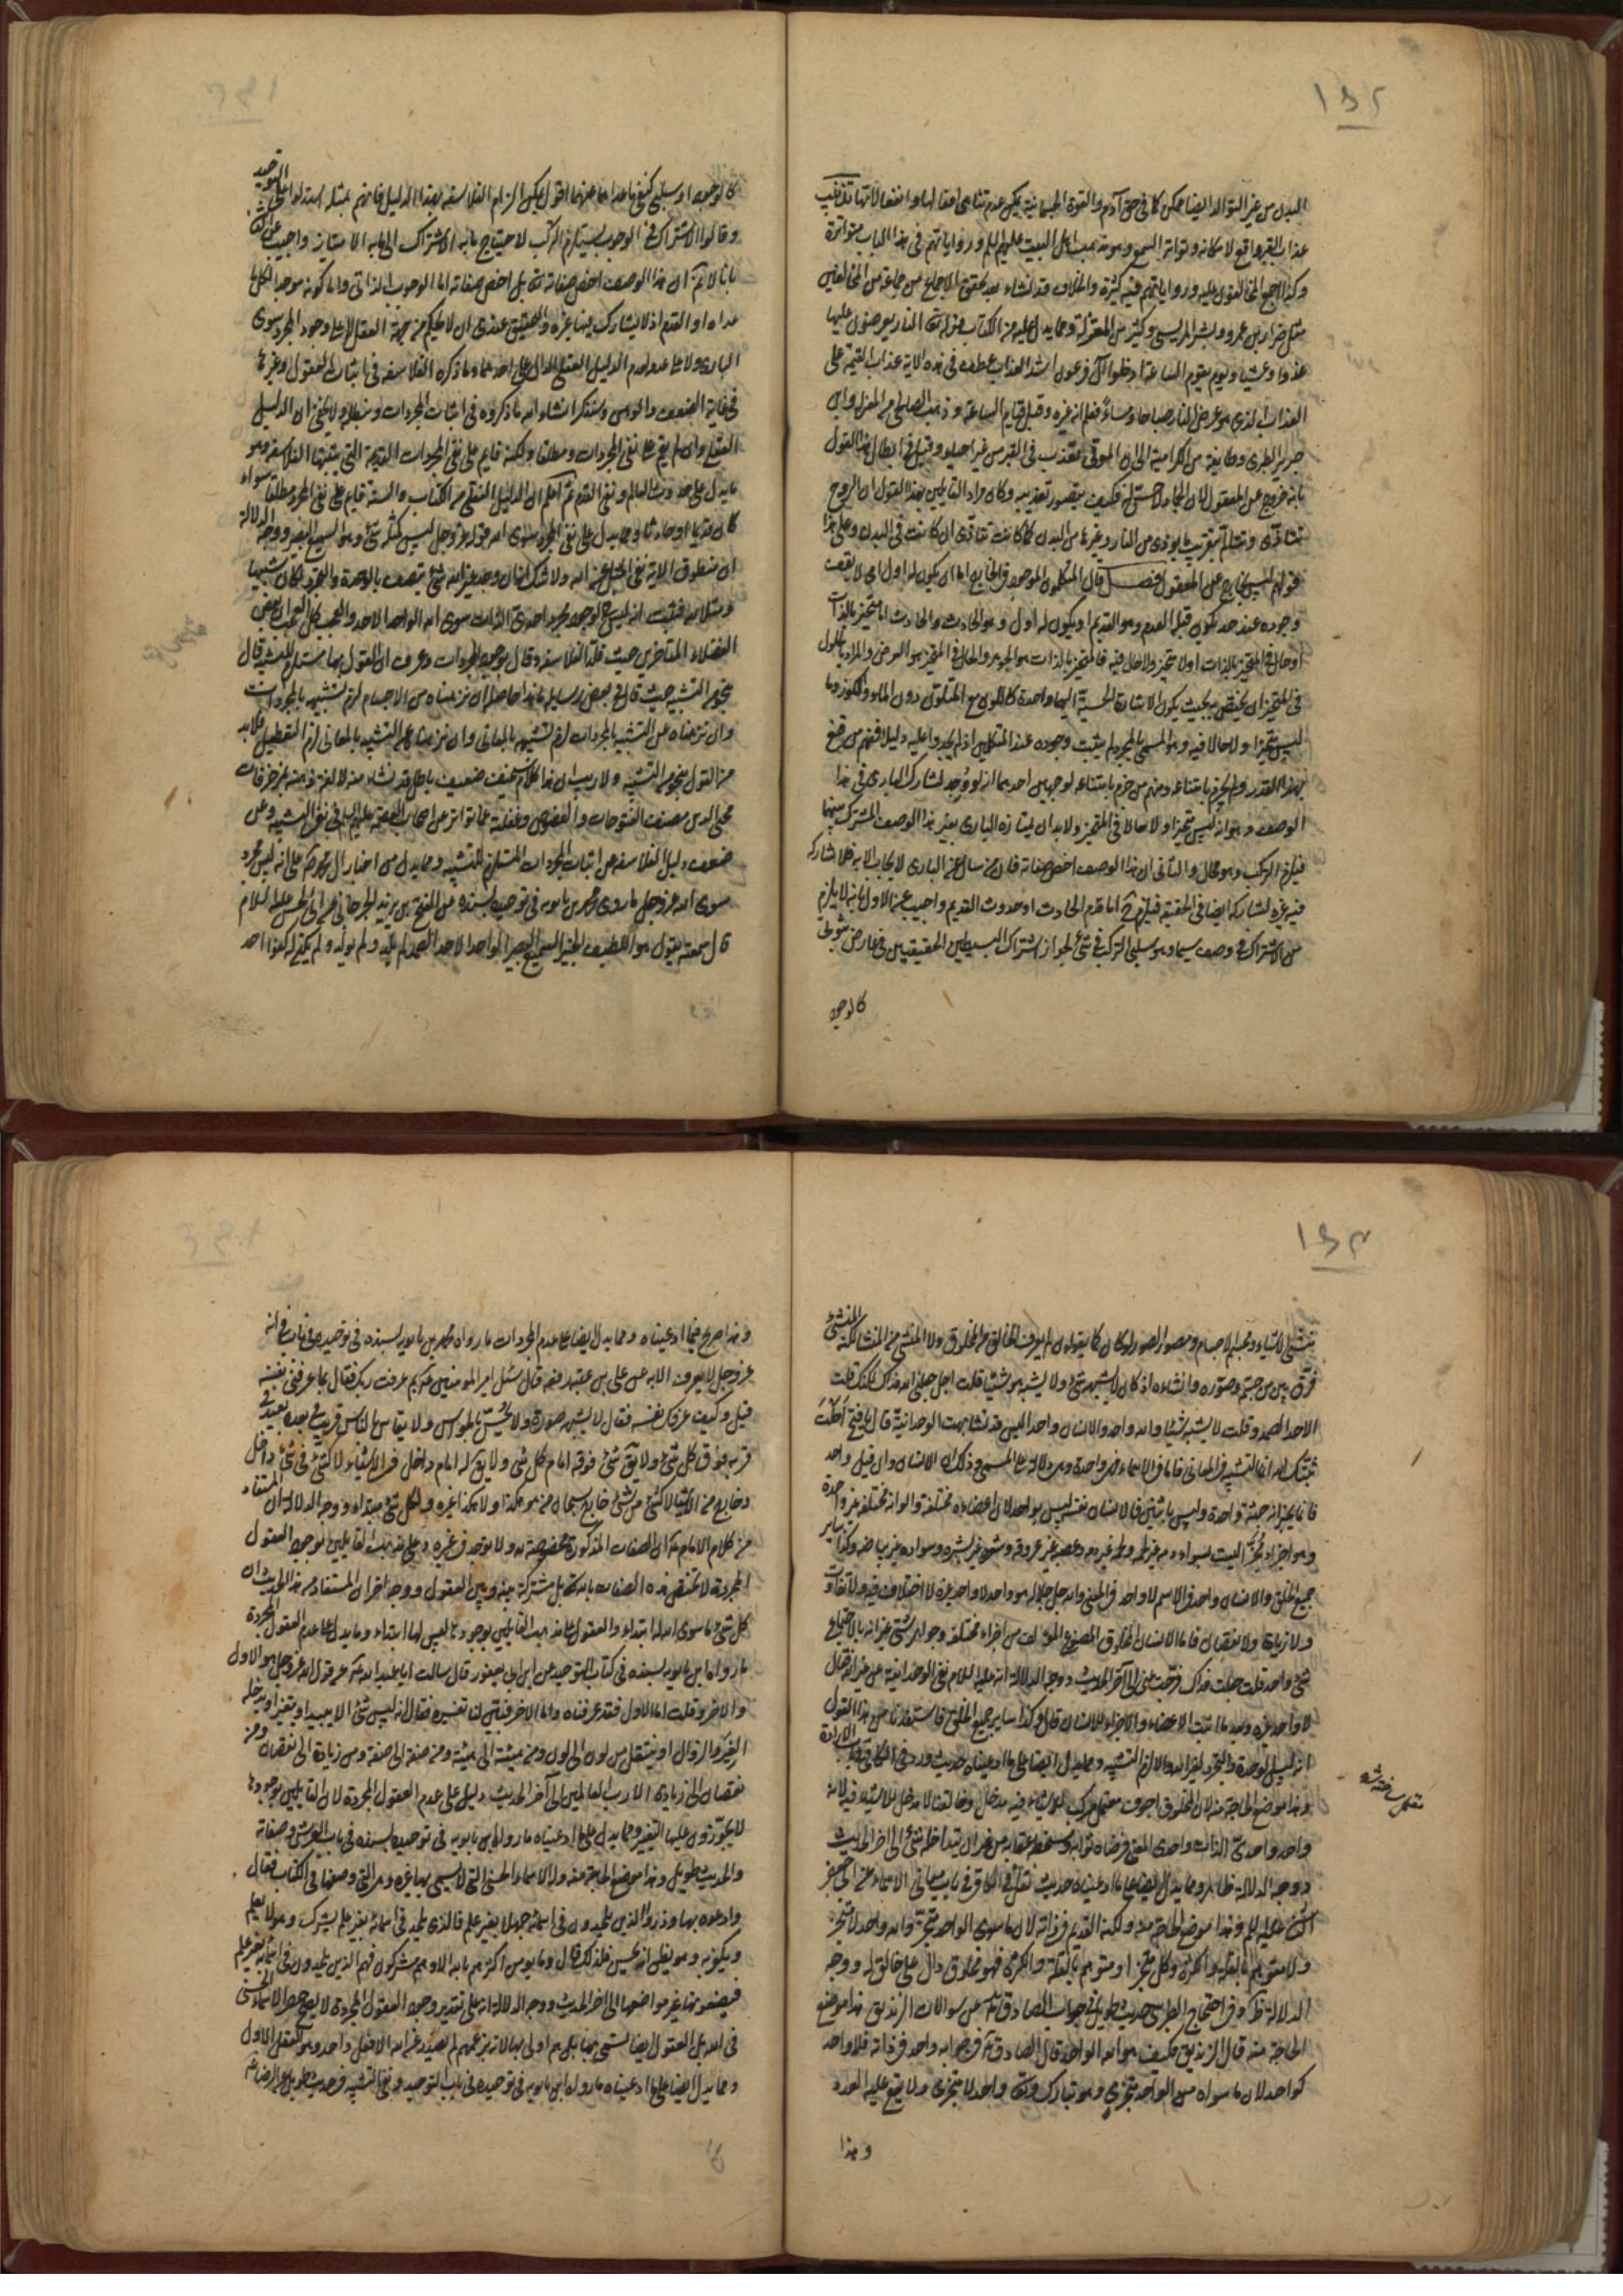 ١٥٢
البدن من غير التوالد ايضا ممكن كما فى حق آدم والقوة الجسمانية يمكن عدم تناهى افعالها وانفعالاتها
عذاب القبر واقع لامكانه وتواتر السمع به وهو مذهب اهل البيت عليهم السلم ورواياتهم فى هذا الباب متواترة
مثل ضرار بن عمرو وبشر المريسى وكثير من المعتزلة ومما يدل عليه من الكتاب قوله تعالى النار يعرضون عليها
غدوا وعشيا ويوم تقوم الساعة ادخلوا آل فرعون اشد العذاب عطف فى هذه الاية عذاب القيمة على
العذاب الذى هو عرض النار صباحا ومساءً فعلم انه غيره وقبل قيام الساعة وذهب الصالحى من المعتزلة وابن
جرير الطبرى وطايفة من الكرامية الى ان الموتى تعذب فى القبر من غير احياء وقيل فى ابطال هذا القول
بانه خروج عن المعقول لان الجماد لا حس له فكيف يتصور تعذيبه وكان مراد القايلين بهذا القول ان الروح
تتاذّى وتتالم بتقريب ما يوذى من النار وغيرها من البدن كما كانت تتاذى ان كانت فى البدن وعلى هذا
قولهم ليس بخارج عن المعقول فصل قال المتكلمون الموجود فى الخارج اما ان يكون له اول اى لا يقف
وجوده عند حد يكون قبله العدم وهو القديم او يكون له اول وهو الحادث والحادث اما متحيز بالذات
او حال فى المتحيز بالذات اولا متحيز ولا حال فيه فالمتحيز بالذات هو الجوهر والحال فى المتحيز هو العرض والمراد بالحلول
فى المتحيز ان يختص به بحيث يكون الاشارة الحسية اليهما واحدة كاللون مع المتلون دون الماء والكوز وما
ليس متحيزا ولا حالا فيه وهو المسمى بالمجرد لم يثبت وجوده عند المتكلمين اذ لم يجدوا عليه دليلا فمنهم من قنع
بهذا القدر ولم يجزم بامتناعه ومنهم من جزم بامتناعه لوجهين احدهما انه لو وُجد لشارك البارى فى هذا
الوصف وهو انه ليس متحيزا ولا حالا فى المتحيز ولابد ان يمتاز عنه البارى بغير هذا الوصف المشترك بينهما
فيلزم التركب وهو محال والثانى ان هذا الوصف اخص صفاته فان من سال عن البارى لا يجاب الا به فلا شاركه
فيه غيره لشاركه ايضا فى الحقيقة فيلزم ح اما قدم الحادث او حدوث القديم واجيب عن الاول بانه لا يلزم
من الاشتراك فى وصف سيما وهو سلبى التركب فى شئ لجواز اشتراك البسيطين الحقيقيين فى عارض ثبوتى
كالوجود
كالوجود او سلبى كنفى ما عداهما عنهما اقول يمكن الزام الفلاسفه بهذا الدليل فانهم بمثله استدلوا على التوحيد
وقالوا الاشتراك فى الوجوب يستلزم التركب لاحتياج ما به الاشتراك الى ما به الامتياز واجيب عن الثانى
بانا لا نم ان هذا الوصف اخص صفاته تعالى بل اخص صفاته اما الوجوب الذاتى واما كونه موجدا لكل ما
عداه او القدم اذ لا يشارك فيها غيره والتحقيق عندى ان لا يحكم من جهة العقل لا على وجود المجرد سوى
البارى ولا على عدمه لعدم الدليل العقلى الدال على احدهما وما ذكره الفلاسفه فى اثبات العقول وغيرها
فى غاية الضعف والوهن وسنذكر انشاء الله ما ذكروه فى اثبات المجردات ونبطله ولا يخفى ان الدليل
العقلى وان لم يقم على نفى المجردات مطلقا ولكنه قايم على نفى المجردات القديمة التى يثبتها الفلاسفه وهو
ما يدل على حدوث العالم ونفى القدم ثم اعلم ان الدليل النقلى من الكتاب والسنة قايم على نفى المجرد مطلقا سواء
كان قديما او حادثا ومما يدل على نفى المجرد سوى الله قوله عز وجل ليس كمثله شئ وهو السميع البصير ووجه الدلالة
ان منطوق الاية نفى المثل عن الله ولا شك انه ان وجد غير الله شئ يتصف بالوحدة والتجرد لكان شبيها
ومثلا به فثبت انه ليس فى الوجود مجرد احدى الذات سوى الله الواحد الاحد والعجب كل العجب ان بعض
الفضلاء المتاخرين حيث قلد الفلاسفه وقال بوجود المجردات وعرف ان القول بها مستلزم للتشبيه قال
بتجويز التشبيه حيث قال فى بعض رسايله ما هذا حاصله ان نزهناه من الاجسام لزم تشبيهه بالمجردات
وان نزهناه عن التشبيه بالمجردات لزم تشبيهه بالمعانى وان نزهناه عن التشبيه بالمعانى لزم التعطيل فلا بد
من القول بتجويز التشبيه ولا ريب ان هذا كلام سخيف ضعيف باطل قد نشاء منه لالفة ذهنه بمزخرفات
محى الدين مصنف الفتوحات والفصوص وغفلته عما تواتر عن اصحاب العصمة عليهم السلم فى نفى التشبيه وعن
ضعف دليل الفلاسفه عن اثبات المجردات المستلزم للتشبيه ومما يدل من اخبار آل محمد على انه ليس مجرد
سوى الله عز وجل ما روى محمد بن بابويه فى توحيده بسنده عن الفتح بن يزيد الجرجانى عن ابى الحسن عليه السلام
قال سمعته يقول هو اللطيف الخبير السميع البصير الواحد الاحد الصمد لم يلد ولم يولد ولم يكن له كفوا احد
١٥٣
منشئ الاشياء ومجسم الاجسام ومصور الصور لو كان كما يقولون لم يعرف الخالق من المخلوق ولا المنشئ من المنشا لكنه المنشئ
فرّق بين من جسّمه وصوّره وانشاءه اذ كان لا يشبهه شئ ولا يشبه هو شيئا قلت اجل جعلنى الله فداك لكنك قلت
الاحد الصمد وقلت لا يشبه شيئا والله واحد والانسان واحد اليس قد تشابهت الوحدانية قال يا فتح احَلْتَ
ثبّتك الله انما التشبيه فى المعانى فاما فى الاسماء فهى واحدة وهى دلالة على المسمى وذلك ان الانسان وان قيل واحد
فانما يخبر انه جثة واحدة وليس باثنين فالانسان نفسه ليس بواحد لان اعضاءه مختلفة والوانه مختلفة غير واحدة
وهو اجزاء مجزّى ليست بسواء دمه غير لحمه ولحمه غير دمه وعصبه غير عروقه وشعره غير بشره وسواده غير بياضه وكذا ساير
جميع الخلق والانسان واحد فى الاسم لا واحد فى المعنى والله جل جلاله هو واحد لا واحد غيره لا اختلاف فيه ولا تفاوت
ولا زيادة ولا نقصان فاما الانسان المخلوق المصنوع المؤلف من اجزاء مختلفة وجواهر شتى غير انه بالاجتماع
شئ واحد قلت جعلت فداك فرّجت عنى الى آخر الحديث ووجه الدلالة انه عليه السلام نفى الوحدانية عن غيره تعالى
لا واحد غيره وبعد ما اثبت الاعضاء والاجزاء للانسان قال وكذا ساير جميع الخلق فاستفدنا من هذا القول
انه ليس الوحدة والتجرد لغير الله والا لزم التشبيه ومما يدل ايضا على ما ادعيناه حديث ورد فى الكافى فى باب الارادة
وهذا موضع الحاجة منه لان المخلوق اجوف معتمل مركب للاشياء فيه مدخل وخالقنا لا مدخل للاشياء فيه لانه
معتمل ساخته شده
واحد واحدىّ الذات واحدى المعنى فرضاه ثوابه وسخطه عقابه من غير ان يتداخله شئ الى اخر الحديث
ووجه الدلالة ظاهر ومما يدل ايضا على ما ادعيناه حديث نقل فى الكافى فى باب معانى الاسماء عن ابى جعفر
الثانى عليه السلم وهذا موضع الحاجة منه ولكنه القديم فى ذاته لان ما سوى الواحد متجزئ والله واحد لا متجزئ
ولا متوهم بالقلة والكثرة وكل متجز او متوهم بالقلة والكثرة فهو مخلوق دال على خالق له ووجه
الدلالة ظ وفى احتجاج الطبرسى حديث طويل فى جواب الصادق عن سوالات الزنديق هذا موضع
الحاجة منه قال الزنديق فكيف هو الله الواحد قال الصادق فى جوابه واحد فى ذاته فلا واحد
كواحد لان ما سواه من الواحد متجزى وهو تبارك وتعالى واحد لا متجزى ولا يقع عليه العدد
وهذا
وهذا صريح فيما ادعيناه ومما يدل ايضا على عدم المجردات ما رواه محمد بن بابويه بسنده فى توحيده فى باب فى انه
عز وجل لا يعرف الا به عن على بن عقبة رفعه قال سئل امير المومنين بم عرفت ربك فقال بما عرفنى نفسه
قيل وكيف عرفك نفسه فقال لا يشبهه صورة ولا يُحسّ بالحواس ولا يقاس بالناس قريب فى بعده بعيد فى
قربه فوق كل شئ ولا يق شئ فوقه امام كل شئ ولا يق له امام داخل فى الاشياء لا كشئ فى شئ داخل
وخارج من الاشياء لا كشئ من شئ خارج سبحان من هو هكذا ولا هكذا غيره ولكل شئ مبتداء ووجه الدلالة ان المستفاد
من كلام الامام ان الصفات المذكورة مخصوصة به ولا توجد فى غيره وعلى مذهب القايلين بوجود العقول
المجردة لا تختص هذه الصفات بالله تعالى بل مشتركة بينه وبين العقول ووجه اخر ان المستفاد من هذا الحديث ان
كل شئ ما سوى الله له ابتداء والعقول على مذهب القايلين بوجودها ليس لها ابتداء ومما يدل على عدم العقول المجردة
ما رواه ابن بابويه بسنده فى كتاب التوحيد عن ابن ابى يعفور قال سالت ابا عبد الله عن قول الله عز وجل هو الاول
والاخر وقلت اما الاول فقد عرفناه واما الاخر فبيّن لنا تفسيره فقال انه ليس شئ الا يبيد او يتغير او يدخله
الغِيَر والزوال او ينتقل من لون الى لون ومن هيئة الى هيئة ومن صفة الى صفة ومن زيادة الى نقصان ومن
نقصان الى زيادة الا رب العالمين الى آخر الحديث دليل على عدم العقول المجردة لان القايلين بوجودها
لا يجوّزون عليها التغير ومما يدل على ما ادعيناه ما رواه ابن بابويه فى توحيده بسنده فى باب العرش وصفاته
والحديث طويل وهذا موضع الحاجة منه وله الاسماء الحسنى التى لا يسمى بها غيره وهى التى وصفها فى الكتاب فقال
فادعوه بها وذروا الذين يلحدون فى اسمائه جهلا بغير علم فالذى يلحد فى اسمائه بغير علم يشرك وهو لا يعلم
ويكفر به وهو يظن انه يحسن فلذلك قال وما يومن اكثرهم بالله الا وهم مشركون فهم الذين يلحدون فى اسمائه بغير علم
فيضعونها غير مواضعها الى اخر الحديث ووجه الدلالة انه على تقدير وجود العقول المجردة لا يصح حصر الاسماء الحسنى
فى الله بل العقول ايضا تسمى بها بل هم اولى بها لانه بزعمهم لم يصدر عن الله الا فعل واحد وهو العقل الاول
ومما يدل ايضا على ما ادعيناه ما رواه ابن بابويه فى توحيده فى باب التوحيد ونفى التشبيه فى حديث طويل عن الرضا